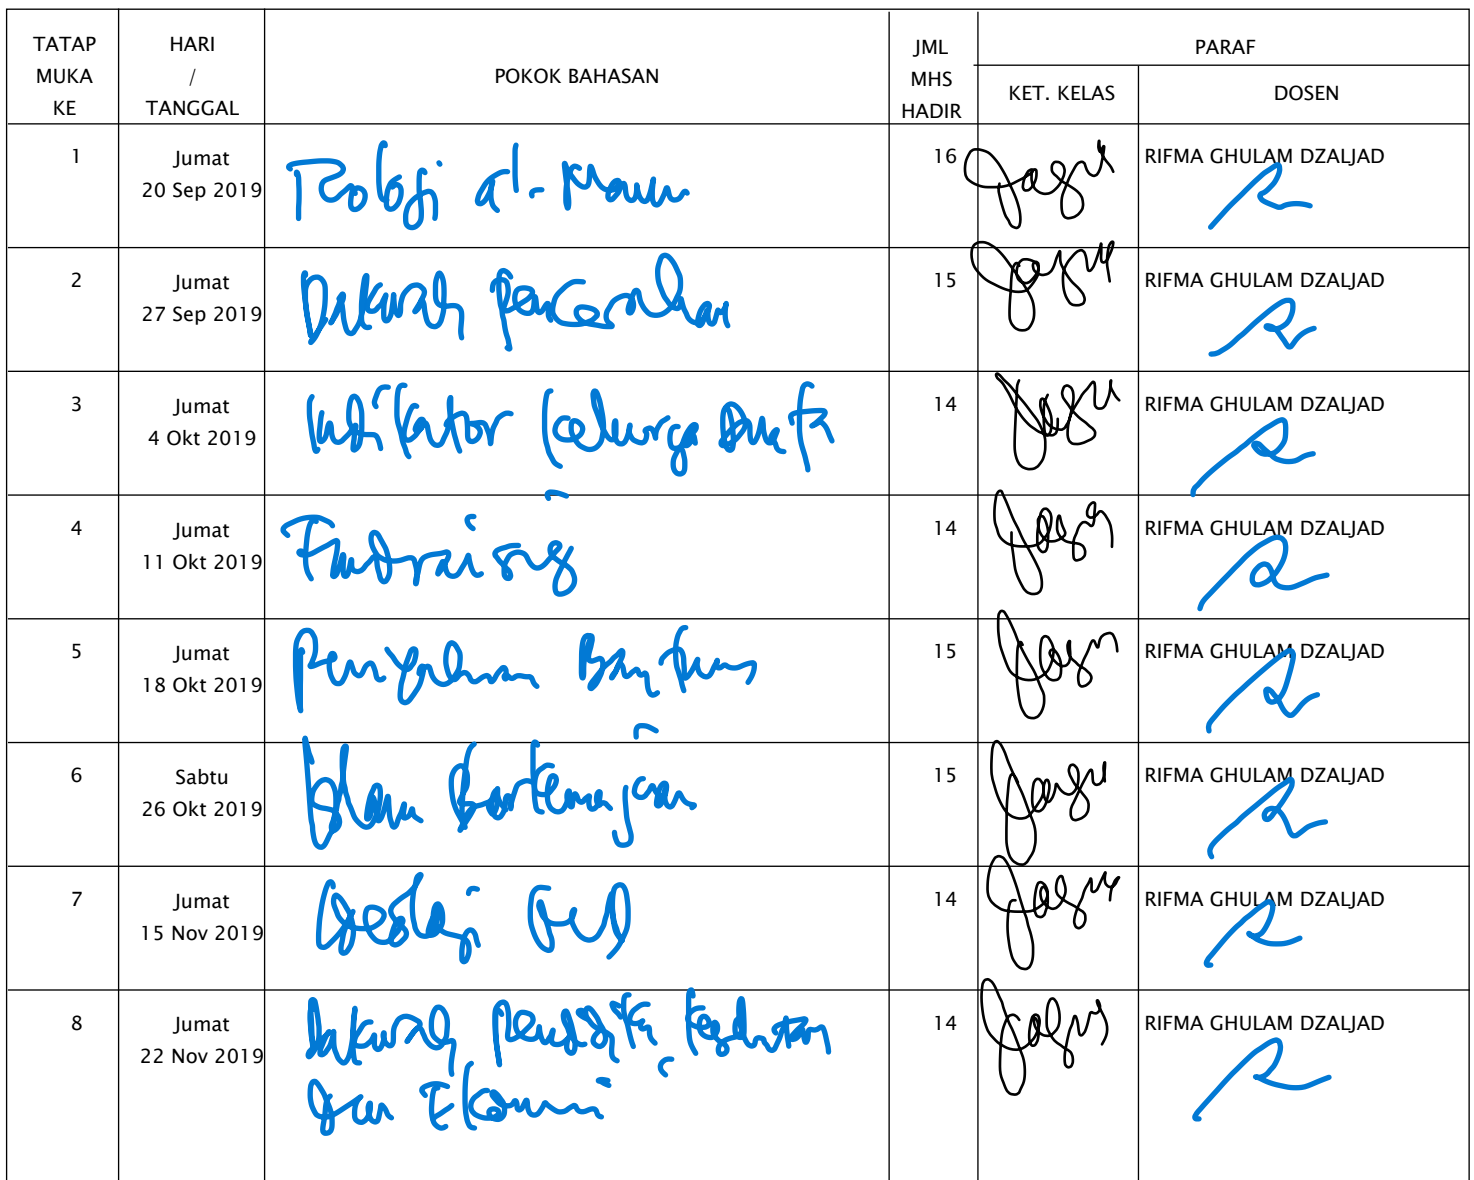 TATAP MUKA KE HARI / TANGGAL POKOK BAHASAN JML MHS HADIR PARAF
KET. KELAS DOSEN
1 Jumat 20 Sep 2019 Teologi al-Maun 16 RIFMA GHULAM DZALJAD
2 Jumat 27 Sep 2019 Dakwah pencerahan 15 RIFMA GHULAM DZALJAD
3 Jumat 4 Okt 2019 Indikator keluarga Duafa 14 RIFMA GHULAM DZALJAD
4 Jumat 11 Okt 2019 Fundraising 14 RIFMA GHULAM DZALJAD
5 Jumat 18 Okt 2019 Bantuan 15 RIFMA GHULAM DZALJAD
6 Sabtu 26 Okt 2019 Islam Berkemajuan 15 RIFMA GHULAM DZALJAD
7 Jumat 15 Nov 2019 14 RIFMA GHULAM DZALJAD
8 Jumat 22 Nov 2019 Dakwah 14 RIFMA GHULAM DZALJAD
dan Ekonomi